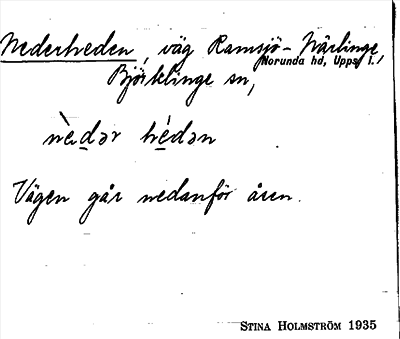 Nederheden, väg Ramsjö - Närlinge
Norunda hd, Upps. l.,
Björklinge sn,
nèdər hédən
Vägen går nedanför åsen.
STINA HOLMSTRÖM 1935